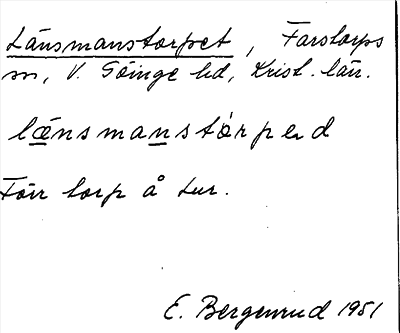 Länsmanstorpet, Farstorps
sn, V. Göinge hd, Krist. län.
lænsmanstòrped
Förr torp å Lur.
E. Bergenrud 1951